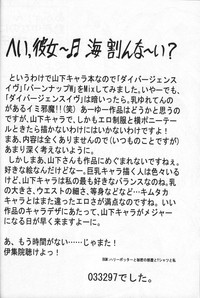 へい、彼女〜♬ 海 割んな〜い？
というわけで山下キャラ本なので「ダイバージェンス
イヴ」「バーンナップW」をMixしてみました。いやーでも、
「ダイバージェンスイヴ」は暗いったら、乳ゆれてんの
があるイミ邪魔!!（笑）あーゆー作品は乳なくてもいい
と思うのですが、しかしエロ制服と横ポニーテー
ルときたら描かないわけにはいかないわけですよ。
まあ、内容は全くありませんので（いつものことですが）
あまり深く考えないように。
しかしまあ、山下さんも作品にめぐまれないですねぇ。
好きな絵なんだけどなー。巨乳キャラ描く人として
は、山下キャラは私の最も好きなバランスなのね。乳
の大きさ、ウエスト細さ、等身などなど…キムタカ
キャラとはまた違ったエロさが満点なのですね。いい
かげん作品のキャラデザにあたって、山下キャラがメジャー
になる日が早く来るのを祈ってます。
あ、もう時間がない……じゃまた！
伊集院聴けよっ！
033297でした。